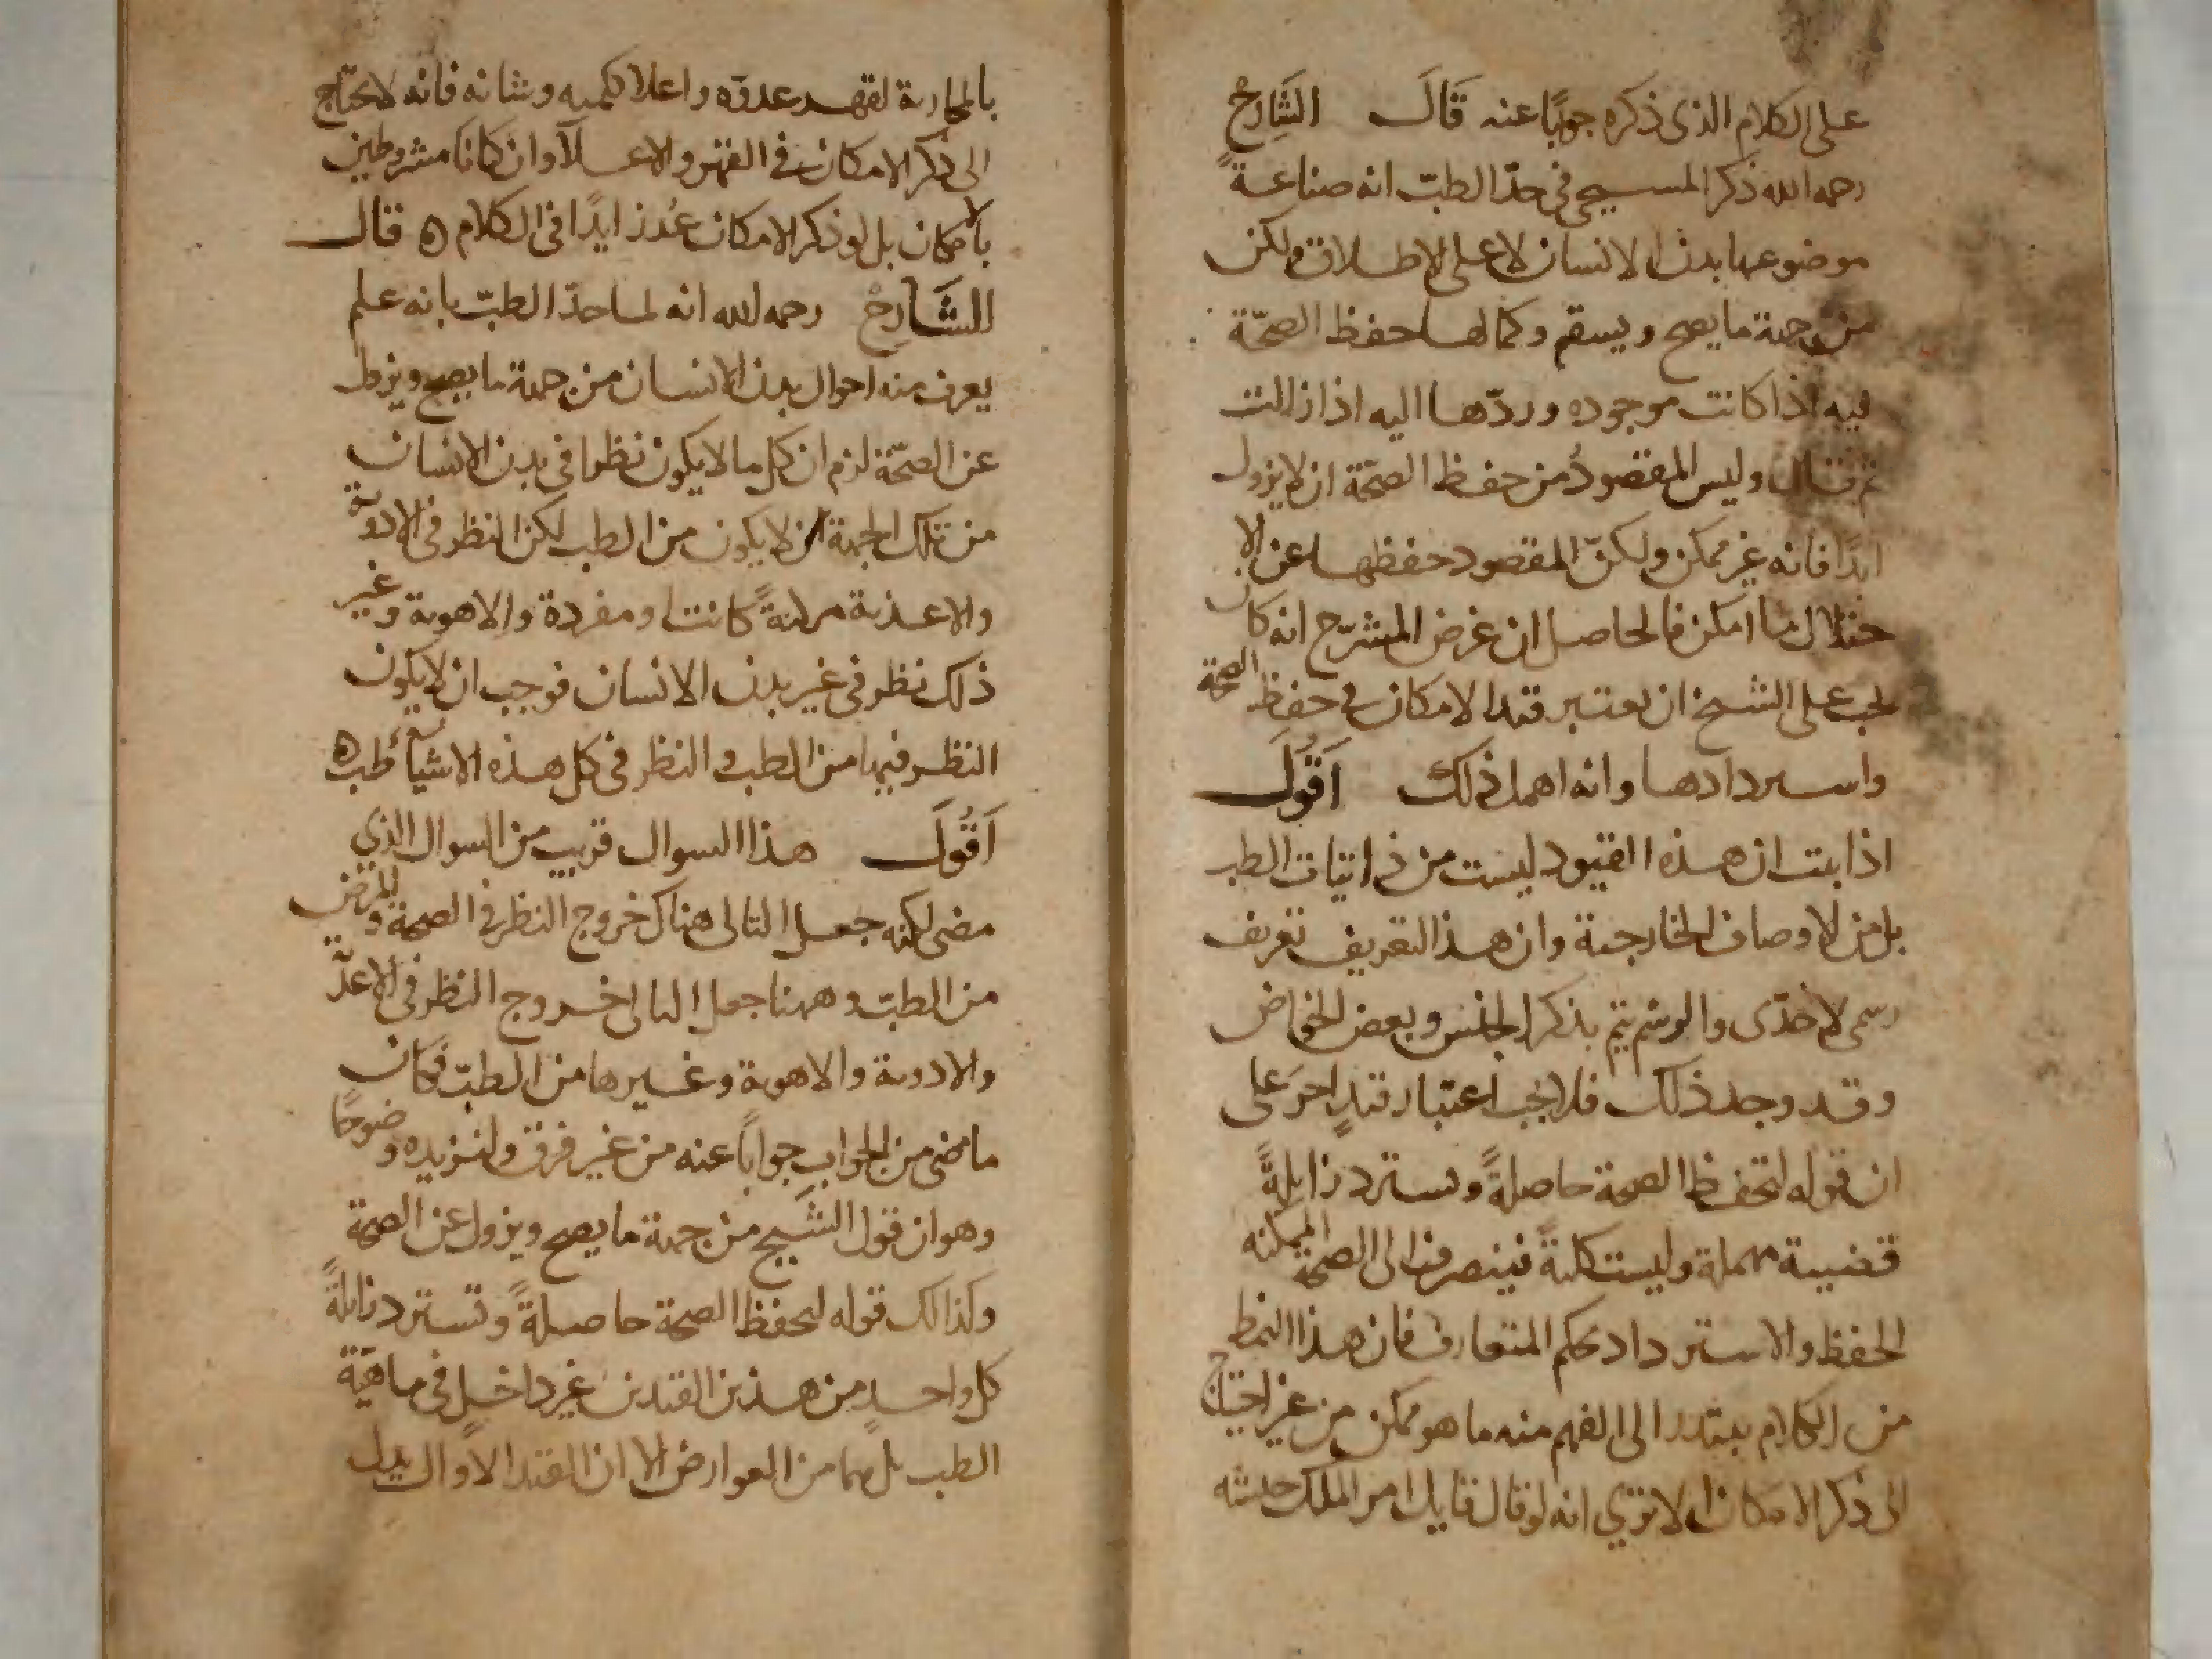 على الكلام الذى ذكره جوابًا عنه قَالَ الشَّارِحْ
رحمه الله ذكر المسيحى فى حدّ الطبّ انه صناعةً
موضوعها بدن الانسان لا على الاطلاق ولكن
من جهة ما يصح ويسقم وكمالها حفظ الصحّة
فيه اذا كانت موجوده وردّها اليه اذا زالت
ثم قال وليس المقصودُ من حفظ الصحّة ان لا يزول
ابدًا فانه غير ممكن ولكنّ المقصود حفظها عن الا
ختلال ما امكن فالحاصل ان غرض المشرّح انه كان
يجب على الشيخ ان يعتبر قيد الامكان فى حفظ الصحة
واستردادها وانه اهمل ذلك اَقُولَ
اذا بت ان هذه القيود ليست من ذاتيات الطب
بل من الاوصاف الخارجية وان هذا التعريف تعريف
رسمى لا حدّى والرسم يتم بذكر الجنس وبعض الخواض
وقد وجد ذلك فلا يجب اعتبار قيدٍ اخر على
ان قوله لتحفظ الصحة حاصلةً وتسترد زايلةً
قضيية مهملة وليست كليةً فينصرف الى الصحة الممكنه
الحفظ والاسترداد بحكم المتعارف فان هذا النمط
من الكلام يبتدر الى الفهم منه ما هو ممكن من غير احتياج
الى ذكر الامكان الا ترى انه لو قال قايل امر الملك جيشه
بالمحاربة لقهر عدوّه واعلا كلمته وشانه فانه لا يحتاج
الى ذكر الامكان فى القهر والاعلآ وان كانا مشروطين
بالامكان بل لو ذكر الامكان عُدّ زايدًا فى الكلام ه قال
الشَّارِحْ رحمه الله انه لما حدّ الطبّ بانه علم
يعرف منه احوال بدن الانسان من جهة ما يصح ويزول
عن الصحّة لزم ان كل ما لا يكون نظرا فى بدن الانسان
من تلك الجهة ان لا يكون من الطب لكن النظر فى الادوية
والاغذية مركبةً كانت او مفردة والاهوية وغير
ذلك نظر فى غير بدن الانسان فوجب ان لا يكون
النظر فيها من الطب و النظر فى كل هذه الاشيآء طب ه
اَقُولَ هذا السوال قريب من السوال الذي
مضى لكنه جعل التالى هناك خروج النظر فى الصحة والمرض
من الطبّ وههنا جعل التالى خروج النظر فى الاغذية
والادوية والاهوية وغيرها من الطبّ فكان
ما مضى من الجواب جوابًا عنه من غير فرق ولنزيده وضوحًا
وهو ان قول الشيخ من جهة ما يصح ويزول عن الصحة
وكذالك قوله لتحفظ الصحة حاصلةً وتسترد زايلةً
كل واحدٍ من هذين القيدين غير داخل فى ماهيّة
الطب بل هما من العوارض الا ان القيد الاوّل يدل